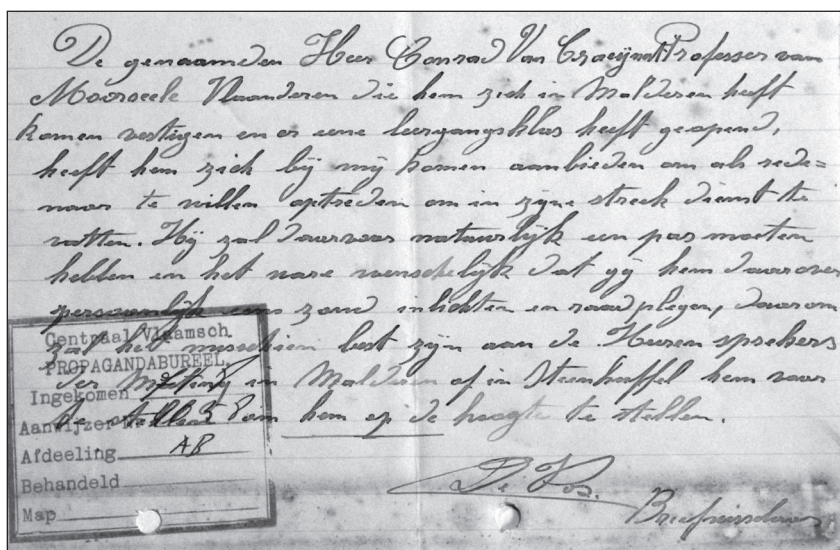 De genaamden Heer Conrad Van Craeynest Professer van
Moorseele Vlaanderen die hem zich in Malderen heeft
komen vestigen en er eene leergangsklas heeft geopend,
heeft hem zich bij mij komen aanbieden om als rede=
naar te willen optreden om in zijne streek dienst te
vatten. Hij zal daarvoor natuurlijk een pas moeten
hebben en het ware wenschelijk dat gij hem daarover
persoonlijk eens zoud inlichten en raadplegen, daarom
zal het misschien best zijn aan de Heeren sprekers
der Meeting in Malderen of in Steenhuffel hem voor
te stellen om hem op de hoogte te stellen.
De Vos.
Centraal Vlaamsch
PROPAGANDABUREEL
Ingekomen
Aanwijzer
Afdeeling AB
Behandeld
Map